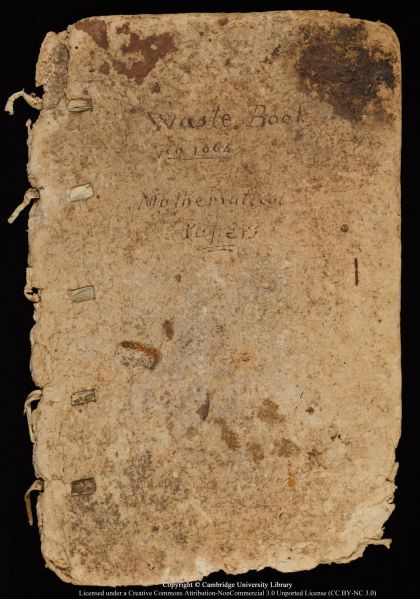 Waste Book
1664
Mathematical
Papers
Copyright © Cambridge University Library
Licensed under a Creative Commons Attribution-NonCommercial 3.0 Unported License (CC BY-NC 3.0)